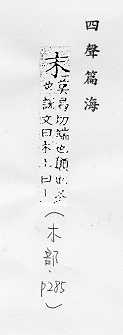 四聲篇海
末
莫曷切端也顛也
也說文曰木上曰
(木部.
p285)